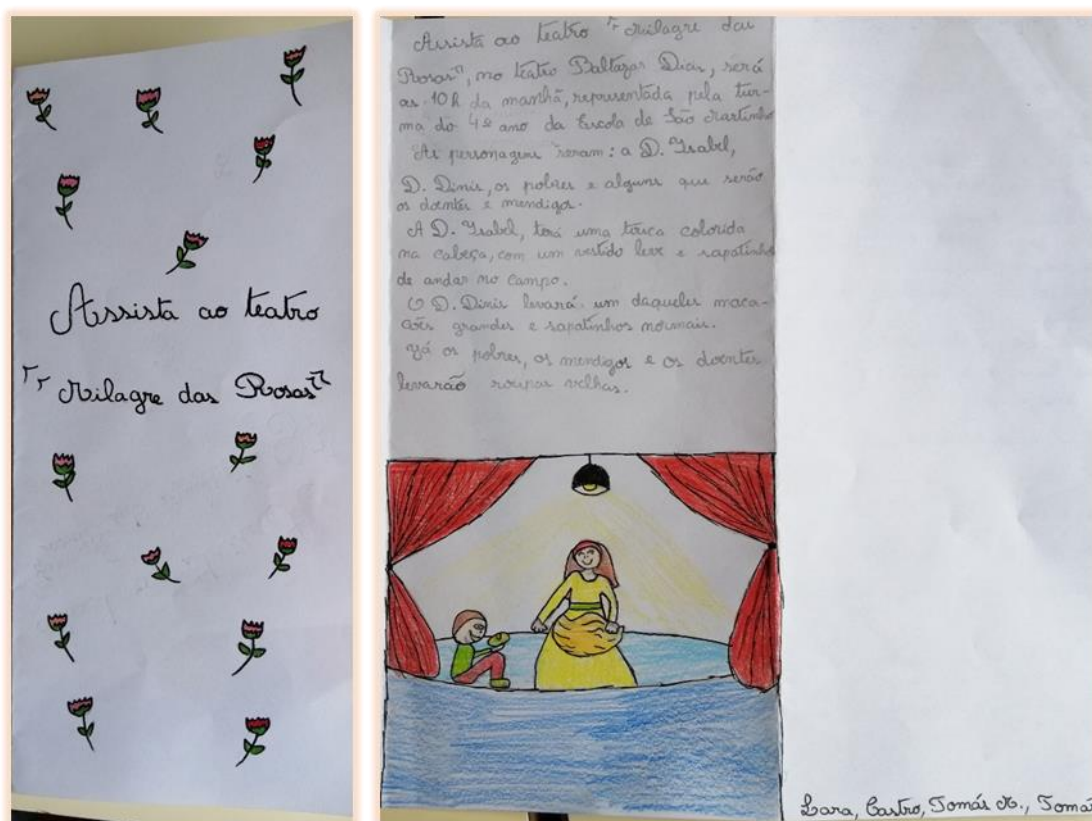 Assista ao teatro
"Milagre das Rosas"
Assista ao teatro "Milagre das
Rosas", no teatro Baltazar Dias, será
as 10h da manhã, representada pela tur-
ma do 4º ano da Escola de São Martinho
As personagens seram: a D. Isabel,
D. Dinis, os pobres e alguns que serão
os doentes e mendigos.
A D. Isabel, terá uma touca colorida
na cabeça, com um vestido leve e sapatinhos
de andar no campo.
O D. Dinis levará um daqueles maca-
cões grandes e sapatinhos normais.
Já os pobres, os mendigos e os doentes
levarão roupas velhas.
Lara, Castro, Tomás M., Tomás